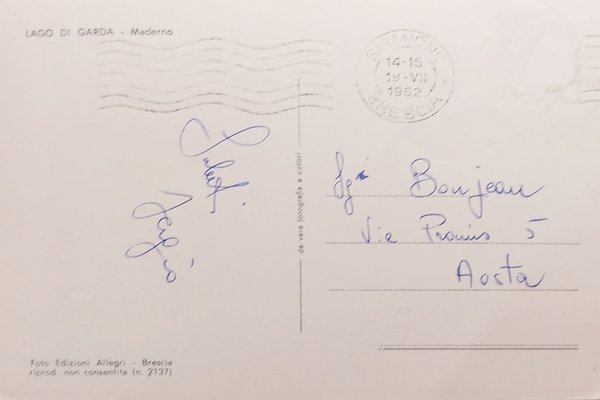 LAGO DI GARDA - Maderno
SIRMIONE
14-15
18-VII
1962
BRESCIA
Saluti
Sergio
da vera fotografia a colori
Sg.i Bonjean
Via Promis 5
Aosta
Foto Edizioni Allegri - Brescia
riprod. non consentita (n. 2137)